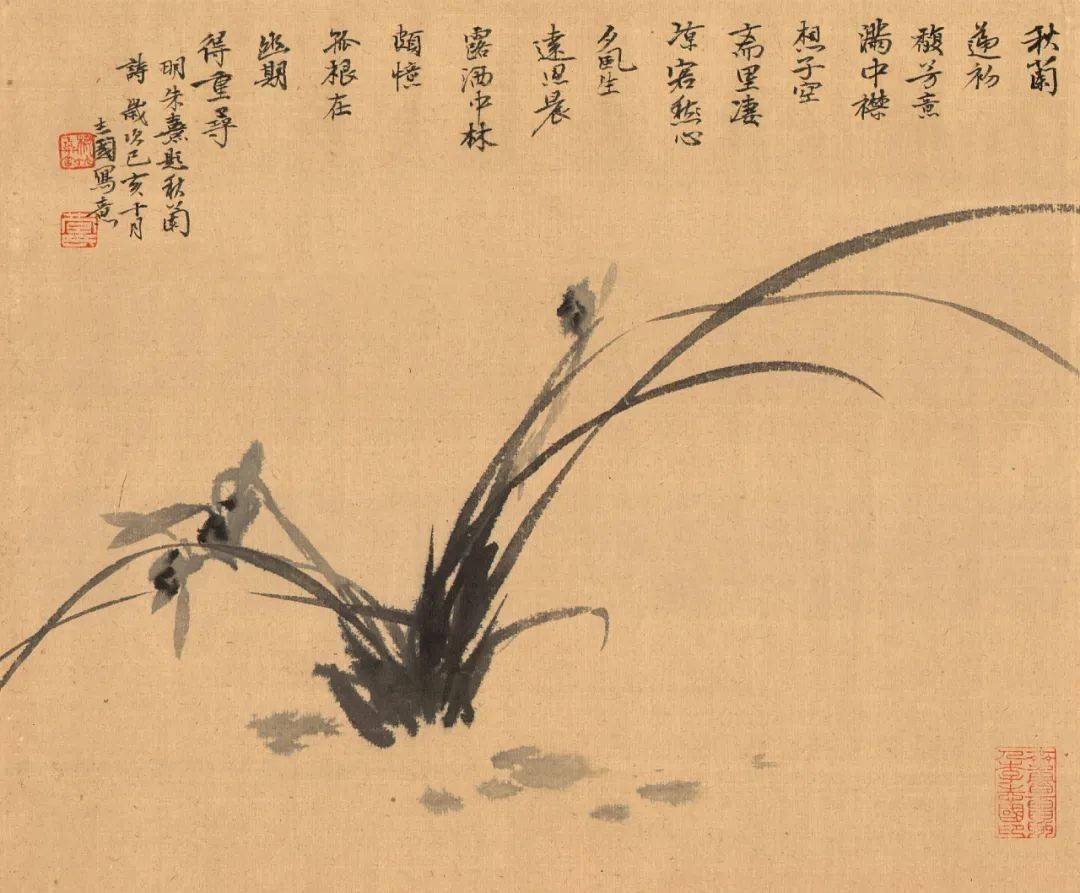 秋蘭
初
馥芳意
滿中襟
想子空
齋里凄
凉客愁心
夕風生
遠思晨
露洒中林
頗憶
孤根在
幽期
得重尋
明朱熹題秋蘭
詩 歲次己亥十月
志國寫意